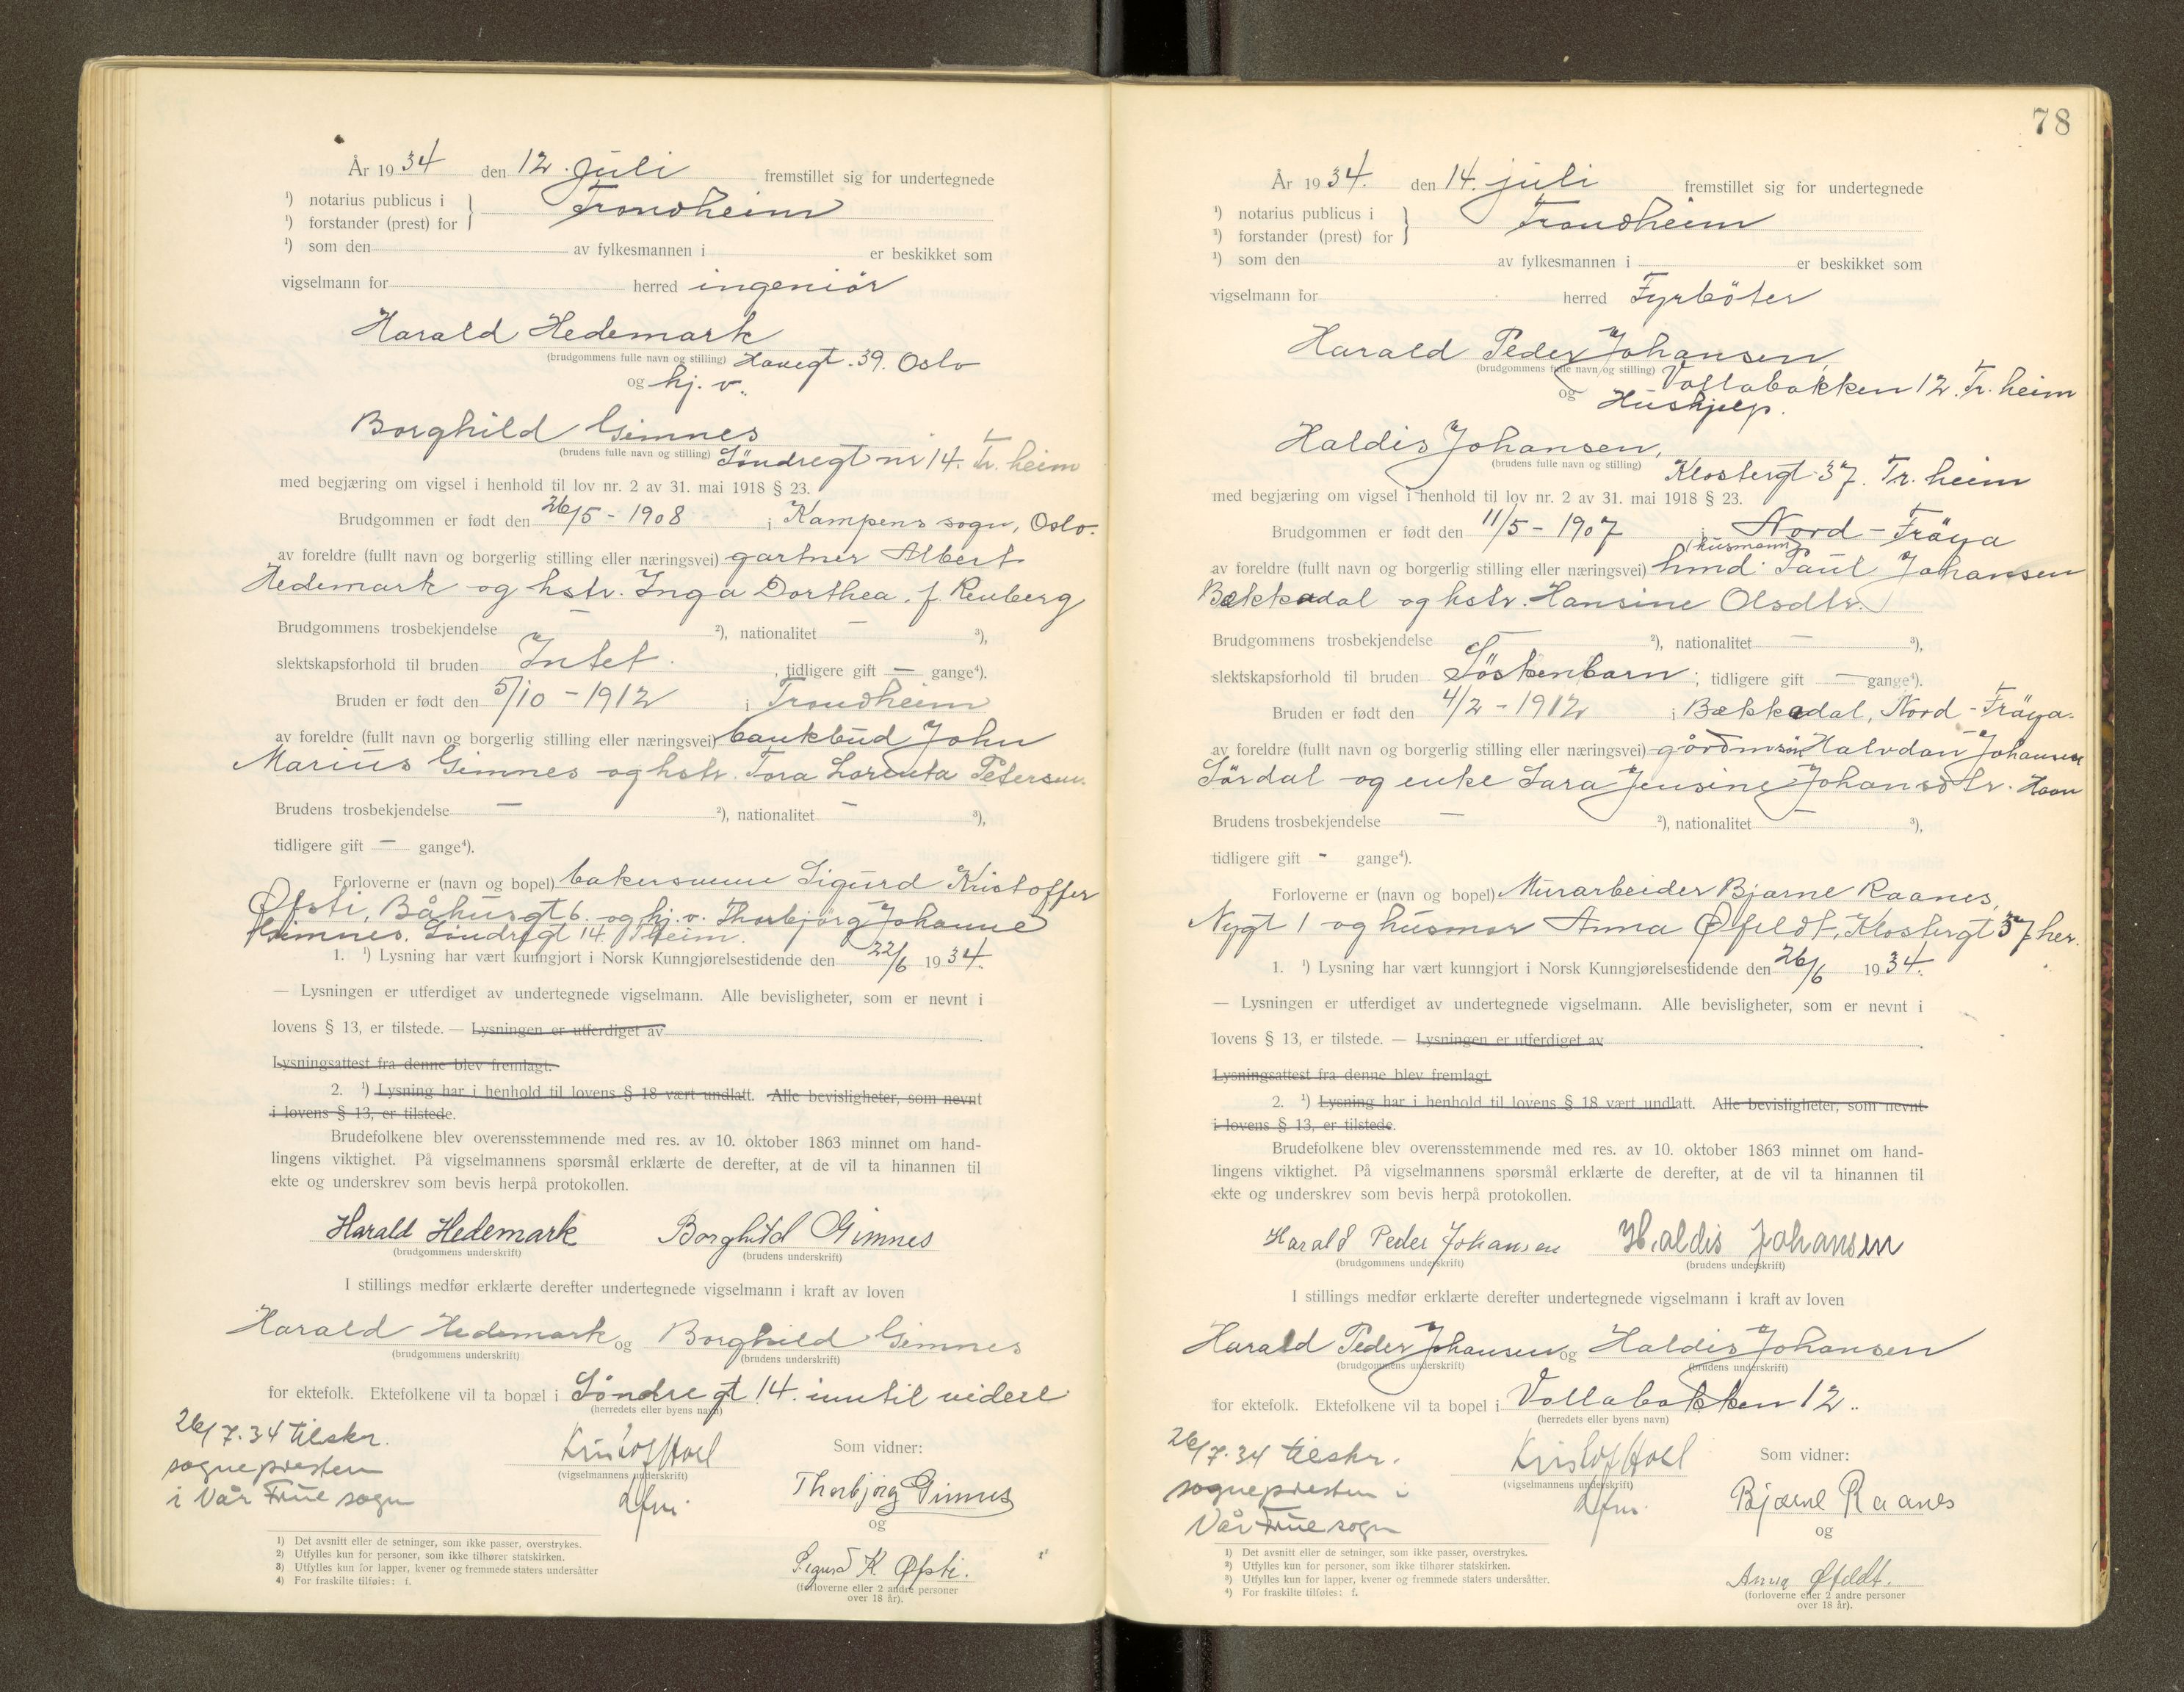 År 1934 den 12. juli fremstillet sig for undertegnede
¹) notarius publicus i
¹) forstander (prest) for } Trondheim
¹) som den av fylkesmannen i er beskikket som
vigselmann for herred ingeniör
Harald Hedemark
(brudgommens fulle navn og stilling) Havegt. 39. Oslo
og hj. v.
Borghild Gimnes
(brudens fulle navn og stilling) Söndregt nr 14. Tr. heim
med begjæring om vigsel i henhold til lov nr. 2 av 31. mai 1918 § 23.
Brudgommen er født den 26/5 - 1908 i Kampens sogn, Oslo.
av foreldre (fullt navn og borgerlig stilling eller næringsvei) gartner Albert
Hedemark og hstr. Inga Dorthea. f. Renberg
Brudgommens trosbekjendelse — ²), nationalitet — ³),
slektskapsforhold til bruden Intet. , tidligere gift — gange⁴).
Bruden er født den 5/10 - 1912 i Trondheim
av foreldre (fullt navn og borgerlig stilling eller næringsvei) bankbud John
Marius Gimnes og hstr. Tora Lorenta Petersen.
Brudens trosbekjendelse — ²), nationalitet — ³),
tidligere gift — gange⁴).
Forloverne er (navn og bopel) bakersvenn Sigurd Kristoffer
Øfsti, Båhusgt 6. og hj. v. Thorbjörg Johanne
Gimnes. Söndregt 14. Tr heim.
1. ¹) Lysning har vært kunngjort i Norsk Kunngjørelsestidende den 22/6 1934.
— Lysningen er utferdiget av undertegnede vigselmann. Alle bevisligheter, som er nevnt i
lovens § 13, er tilstede. — Lysningen er utferdiget av
Lysningsattest fra denne blev fremlagt.
2. ¹) Lysning har i henhold til lovens § 18 vært undlatt. Alle bevisligheter, som nevnt
i lovens § 13, er tilstede.
Brudefolkene blev overensstemmende med res. av 10. oktober 1863 minnet om hand-
lingens viktighet. På vigselmannens spørsmål erklærte de derefter, at de vil ta hinannen til
ekte og underskrev som bevis herpå protokollen.
Harald Hedemark Borghild Gimnes
(brudgommens underskrift) (brudens underskrift)
I stillings medfør erklærte derefter undertegnede vigselmann i kraft av loven
Harald Hedemark og Borghild Gimnes
(brudgommens underskrift) (brudens underskrift)
for ektefolk. Ektefolkene vil ta bopæl i Söndregt 14. inntil videre
(herredets eller byens navn)
26/7.34 tilskr.
sognepresten
i Vår Frue sogn
Kristof Hoel
(vigselmannens underskrift)
Som vidner:
Thorbjörg Gimnes
og
Sigurd K. Øfsti.
(forloverne eller 2 andre personer
over 18 år).
1) Det avsnitt eller de setninger, som ikke passer, overstrykes.
2) Utfylles kun for personer, som ikke tilhører statskirken.
3) Utfylles kun for lapper, kvener og fremmede staters undersåtter
4) For fraskilte tilføies: f.
78
År 1934. den 14. juli fremstillet sig for undertegnede
¹) notarius publicus i
¹) forstander (prest) for } Trondheim
¹) som den av fylkesmannen i er beskikket som
vigselmann for herred Fyrböter
Harald Peder Johansen,
(brudgommens fulle navn og stilling) Vollabakken 12. Tr. heim
og Hushjelp.
Haldis Johansen,
(brudens fulle navn og stilling) Klostergt 37. Tr. heim
med begjæring om vigsel i henhold til lov nr. 2 av 31. mai 1918 § 23.
Brudgommen er født den 11/5 - 1907 i Nord - Fröya
(husmann)
av foreldre (fullt navn og borgerlig stilling eller næringsvei) hmd. Paul Johansen
Bekkadal og hstr. Hansine Olsdtr.
Brudgommens trosbekjendelse — ²), nationalitet — ³),
slektskapsforhold til bruden Söskenbarn; tidligere gift — gange⁴).
Bruden er født den 4/2 - 1912 i Bekkedal, Nord - Fröya.
av foreldre (fullt navn og borgerlig stilling eller næringsvei) gårdm Halvdan Johansen
Sördal og enke Sara Jensine Johansdtr.
Brudens trosbekjendelse — ²), nationalitet — ³),
tidligere gift - gange⁴).
Forloverne er (navn og bopel) Murarbeider Bjarne Raanes,
Nygt 1 og husmor Anna Øfeldt, Klostergt 37 her.
1. ¹) Lysning har vært kunngjort i Norsk Kunngjørelsestidende den 26/6 1934.
— Lysningen er utferdiget av undertegnede vigselmann. Alle bevisligheter, som er nevnt i
lovens § 13, er tilstede. — Lysningen er utferdiget av
Lysningsattest fra denne blev fremlagt.
2. ¹) Lysning har i henhold til lovens § 18 vært undlatt. Alle bevisligheter, som nevnt
i lovens § 13, er tilstede.
Brudefolkene blev overensstemmende med res. av 10. oktober 1863 minnet om hand-
lingens viktighet. På vigselmannens spørsmål erklærte de derefter, at de vil ta hinannen til
ekte og underskrev som bevis herpå protokollen.
Harald Peder Johansen Haldis Johansen
(brudgommens underskrift) (brudens underskrift)
I stillings medfør erklærte derefter undertegnede vigselmann i kraft av loven
Harald Peder Johansen og Haldis Johansen
(brudgommens underskrift) (brudens underskrift)
for ektefolk. Ektefolkene vil ta bopel i Vollabakken 12.
(herredets eller byens navn)
26/7.34 tilskr.
sognepresten i
Vår Frue sogn
Kristof Hoel
(vigselmannens underskrift)
Som vidner:
Bjarne Raanes
og
Anna Øfeldt.
(forloverne eller 2 andre personer
over 18 år).
1) Det avsnitt eller de setninger, som ikke passer, overstrykes.
2) Utfylles kun for personer, som ikke tilhører statskirken.
3) Utfylles kun for lapper, kvener og fremmede staters undersåtter.
4) For fraskilte tilføies: f.